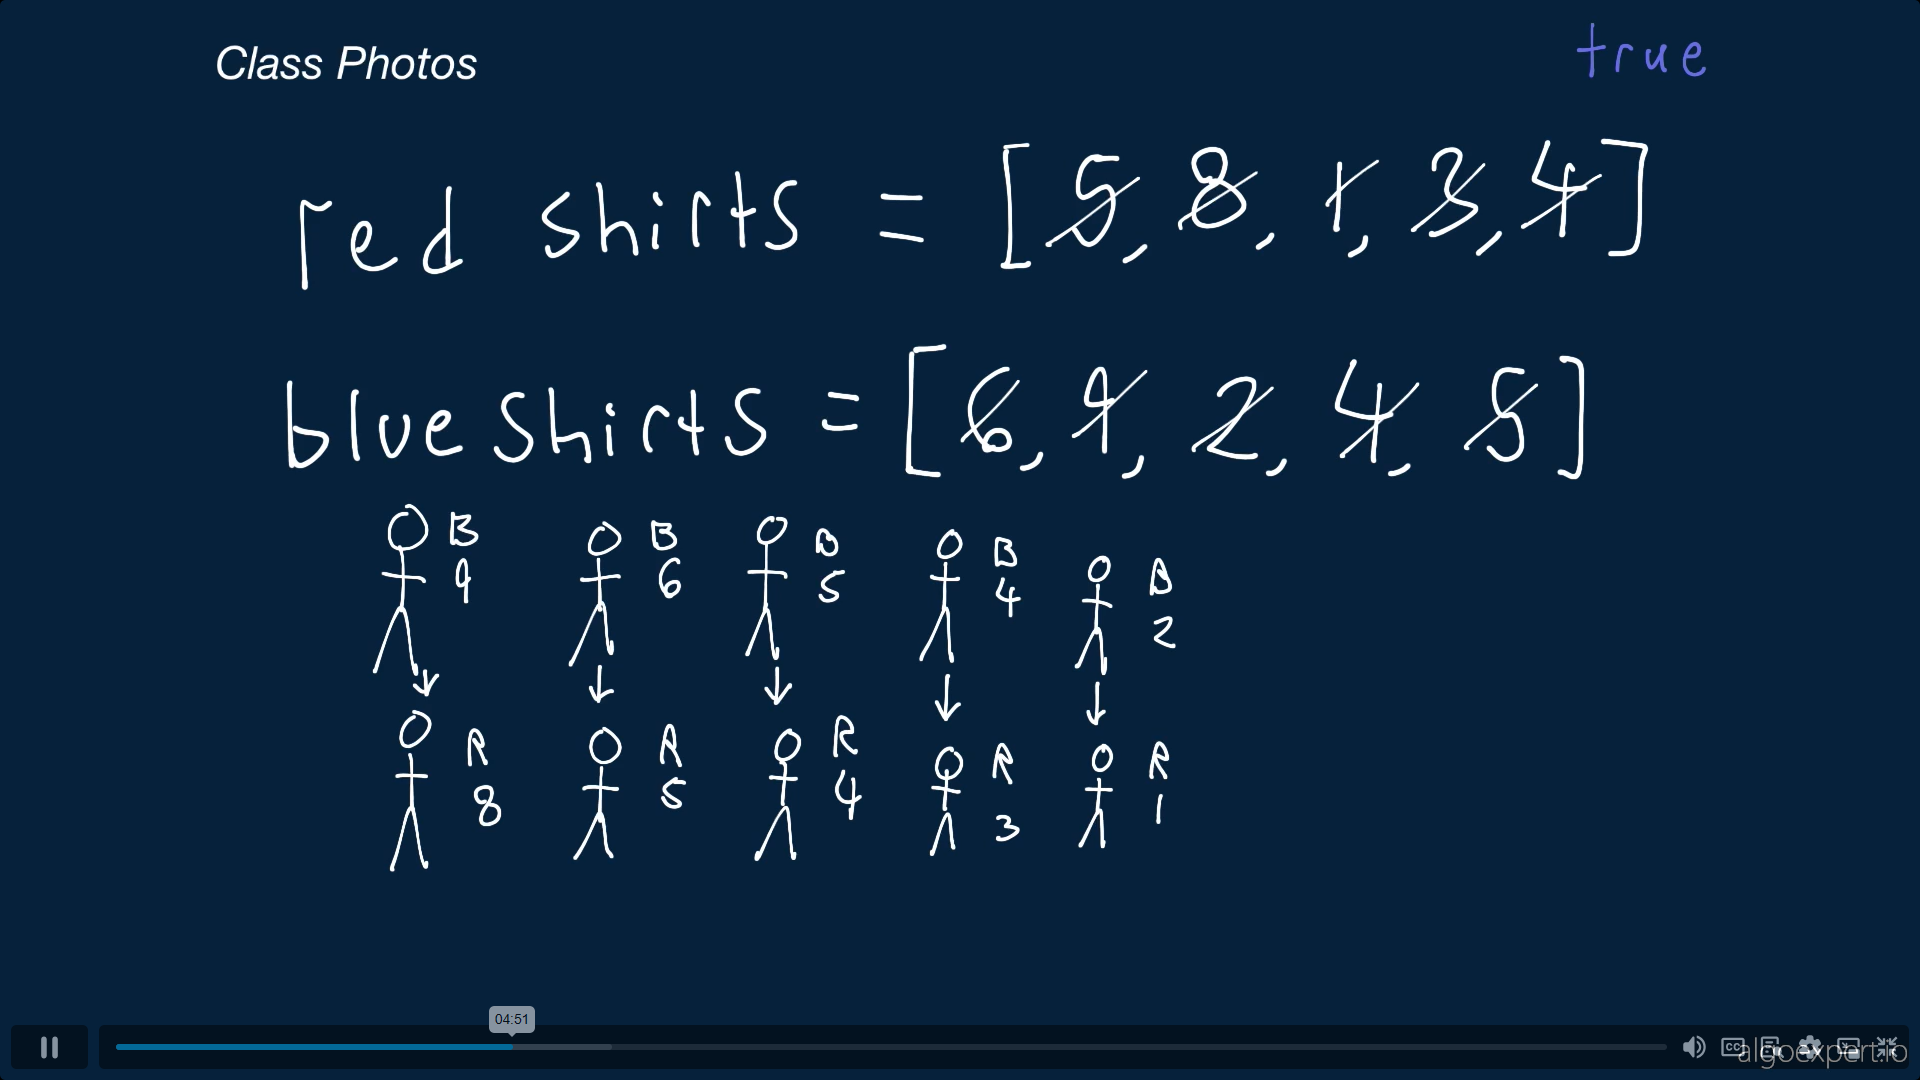 Class Photos
true
red shirts = [5, 8, 1, 3, 4]
blue shirts = [6, 9, 2, 4, 5]
B B B B B
9 6 5 4 2
R R R R R
8 5 4 3 1
04:51
CC
algoexpert.io